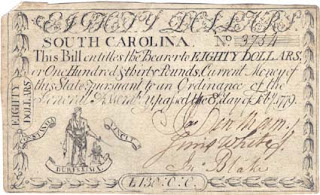 EIGHTY DOLLARS
SOUTH CAROLINA. No 3754
This Bill entitles the Bearer to EIGHTY DOLLARS.
or One Hundred & thirty Pounds Current Money of
this State, pursuant to an Ordinance of the
General Assembly passed the 8 day of Feby 1779.
EIGHTY
DOLLARS
CONSTANTIA
VINCIT
DURISSIMA
Jno Blake
£130. C.C.